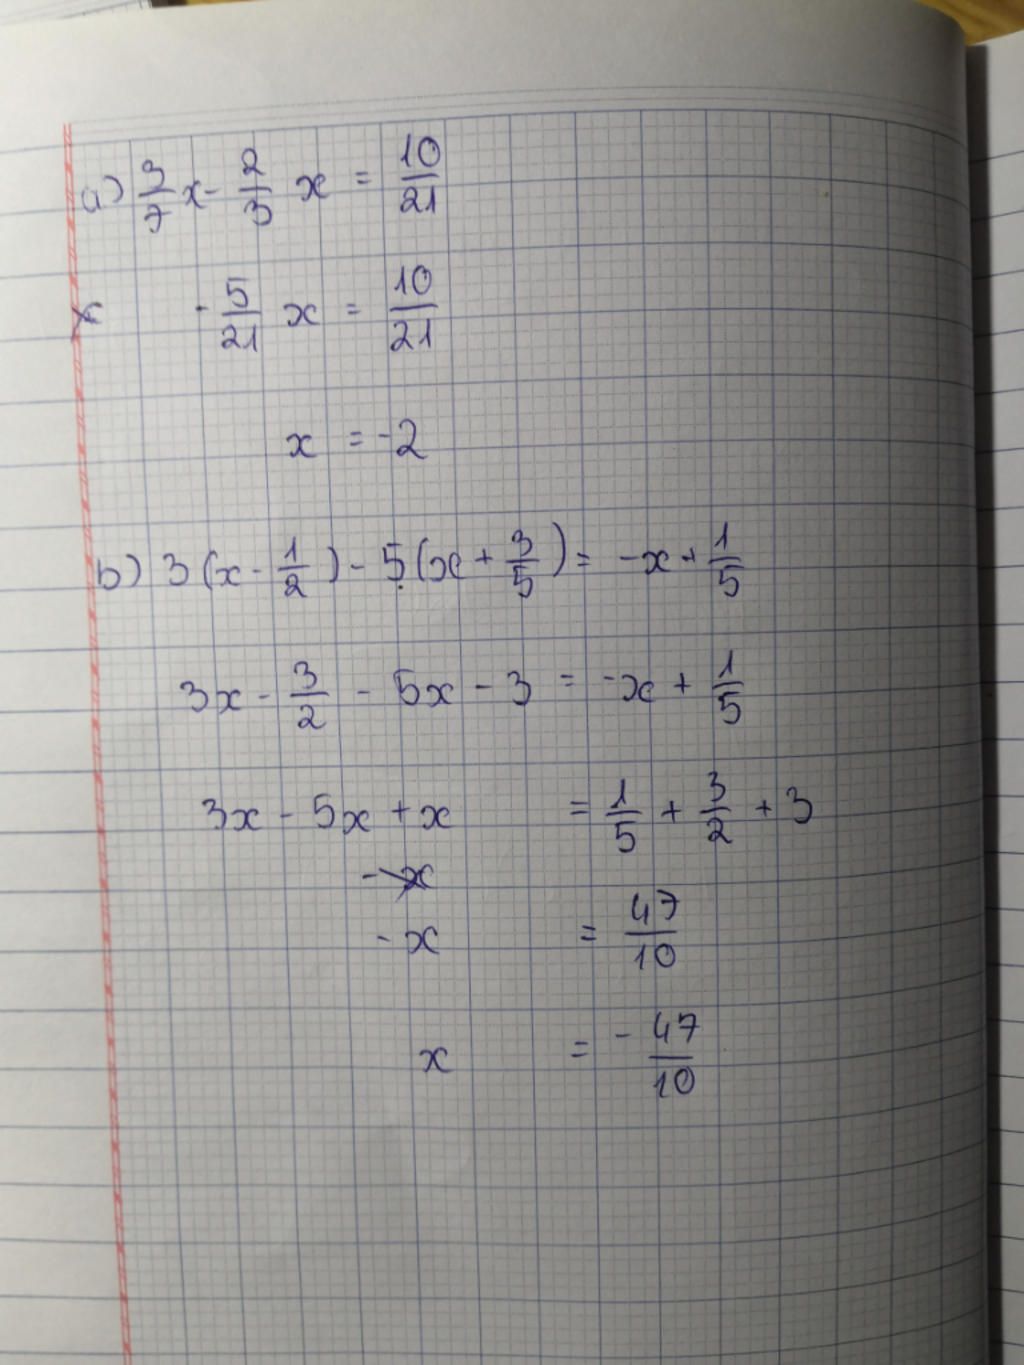 a) 3/7 x - 2/3 x = 10/21
x - 5/21 x = 10/21
x = -2
b) 3(x - 1/2) - 5(x + 3/5) = -x + 1/5
3x - 3/2 - 5x - 3 = -x + 1/5
3x - 5x + x = 1/5 + 3/2 + 3
-x
-x = 47/10
x = - 47/10